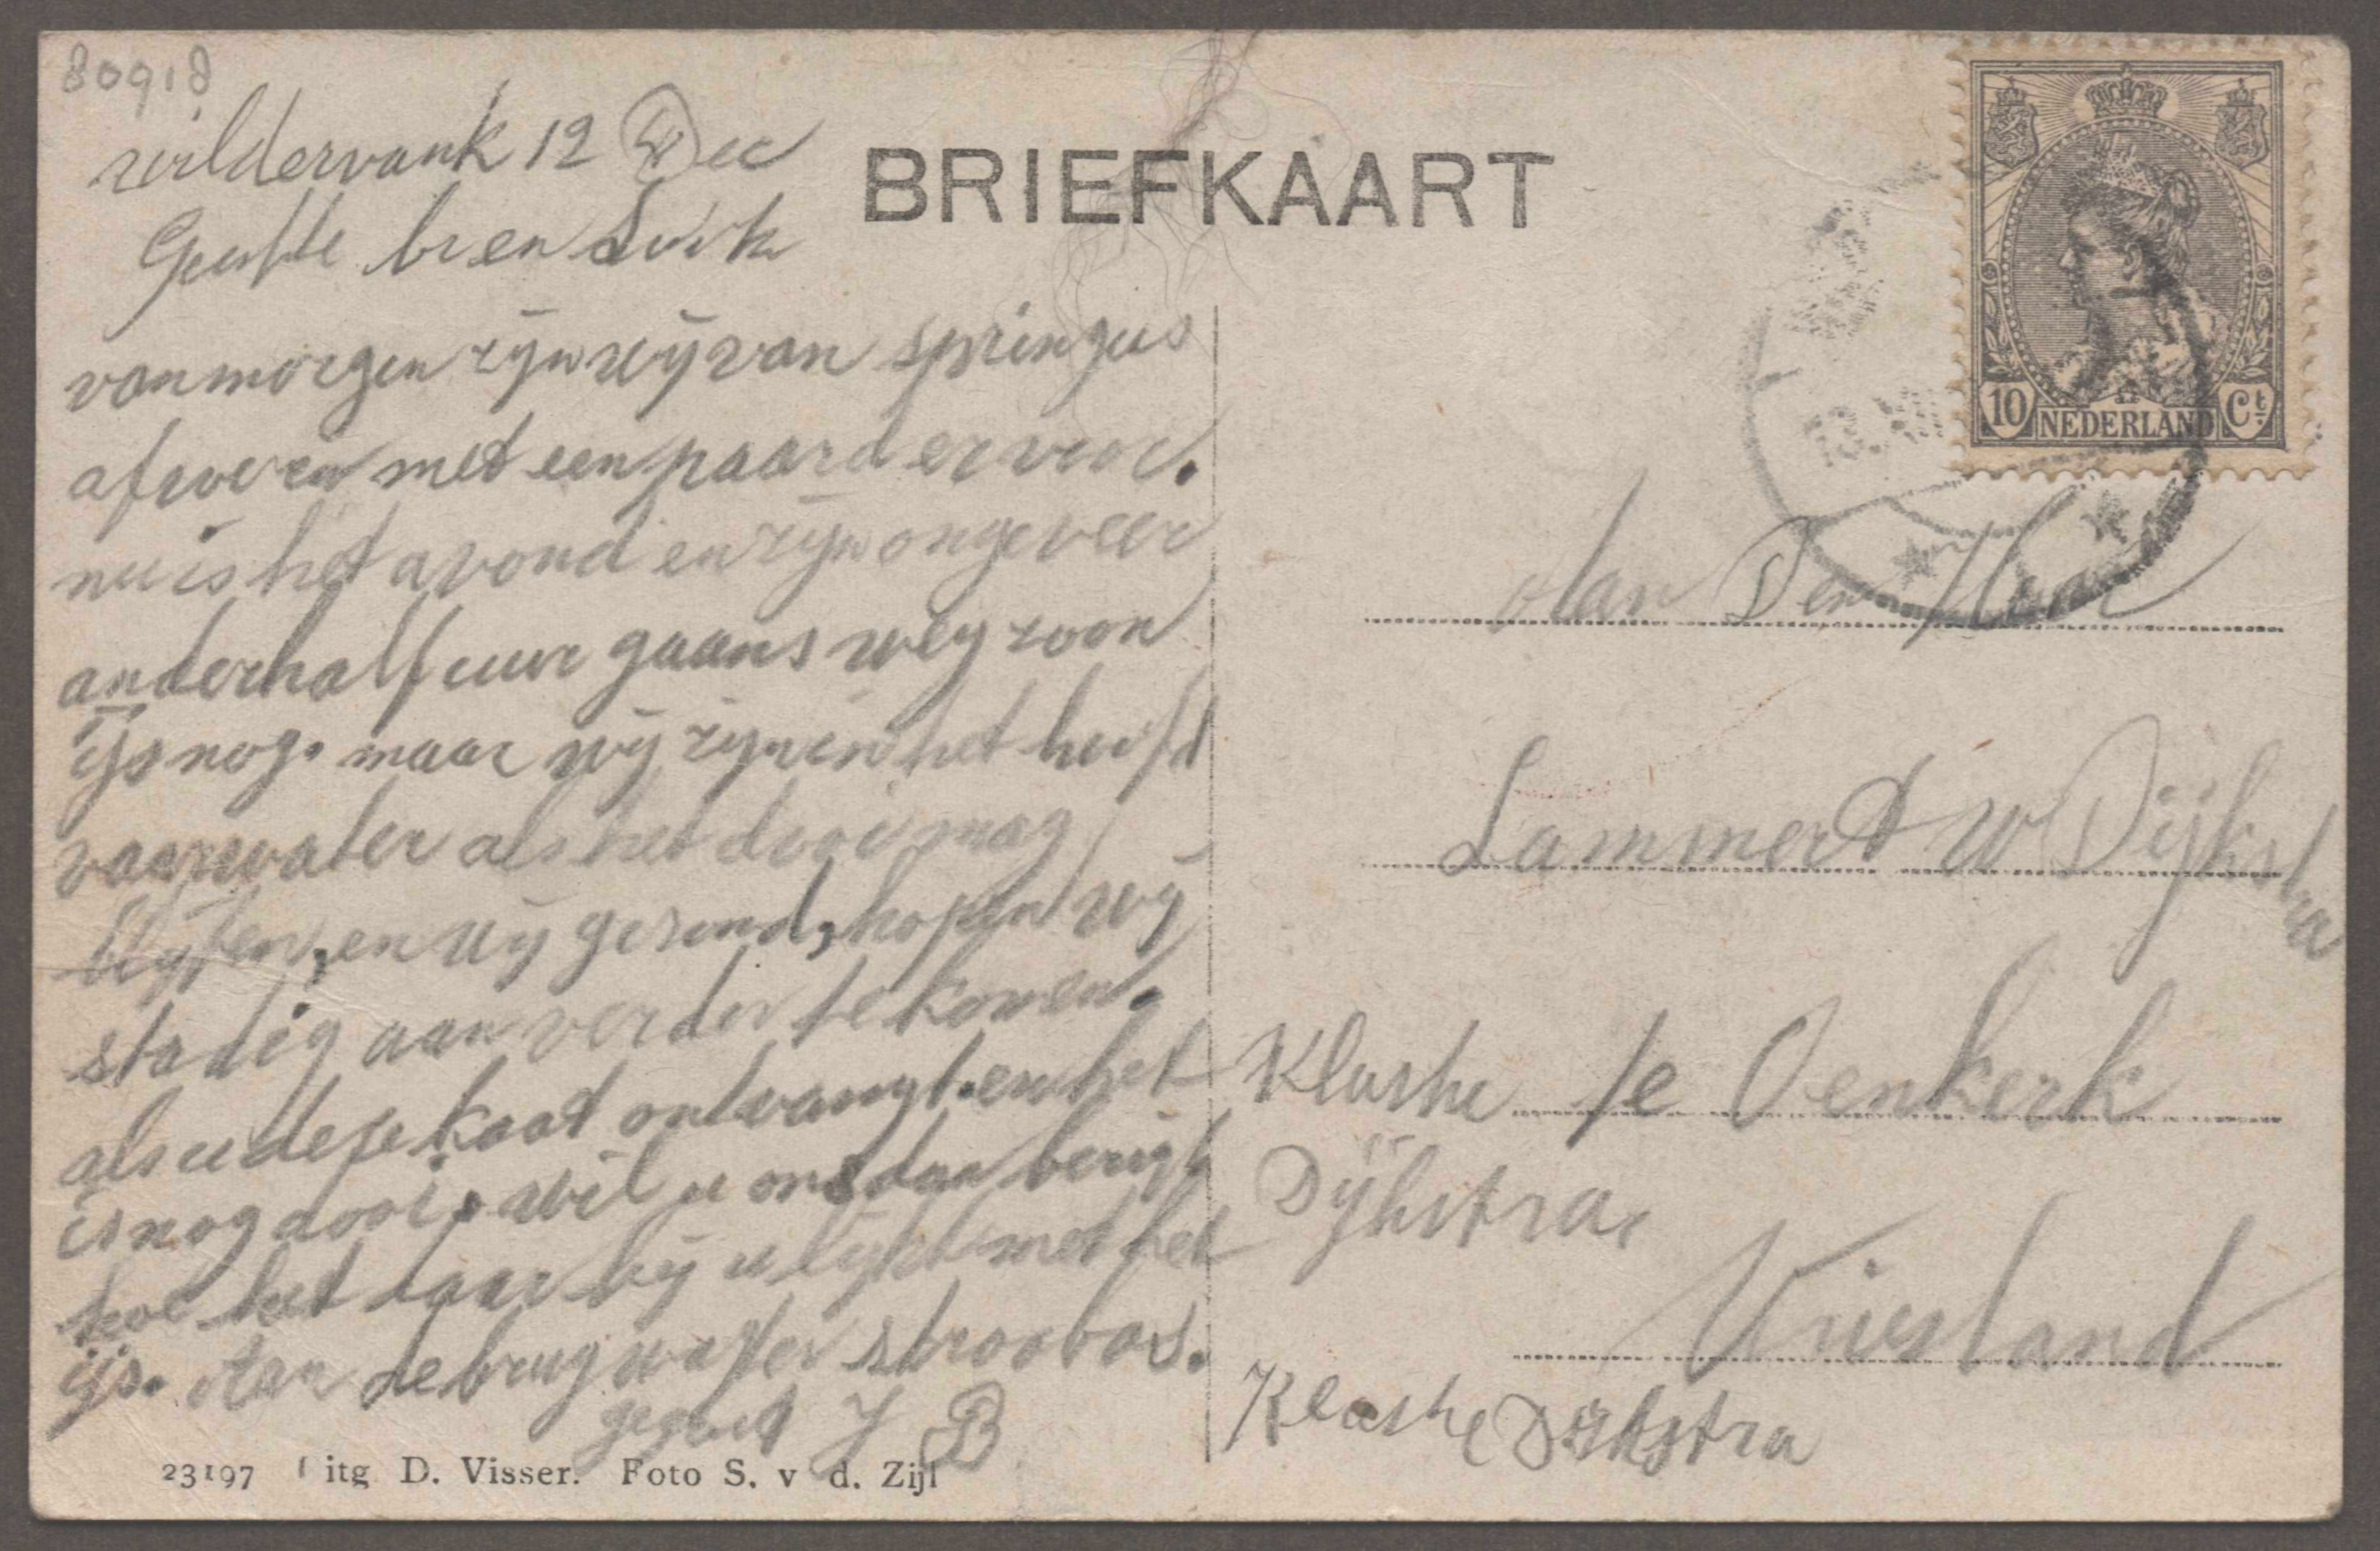 80918
wildervank 12 Dec
BRIEFKAART
10 NEDERLAND Ct
van morgen zijn wij van
af met een paard er voor.
nu is het avond en zijn ongeveer
anderhalf uur gaans weg zoon
ijs nog. maar wij zijn in het hoofd
vaarwater als het dooi mag
blijfen, en wij gesond, hopen wij
stadig aan verder te komen.
als u dese kaat ontvangt. en het
is nog dooi. wil u ons dan berigt
hoe het daar bij u lijkt met het
ijs. Aan de brugwagter stroobos.
gegroet J B
Aan Den Heer
Lammert W Dijkstra
Klaske te Oenkerk
Dijkstra.
Vriesland
Klaske Dijkstra
23197 Uitg D. Visser. Foto S. v d. Zijl